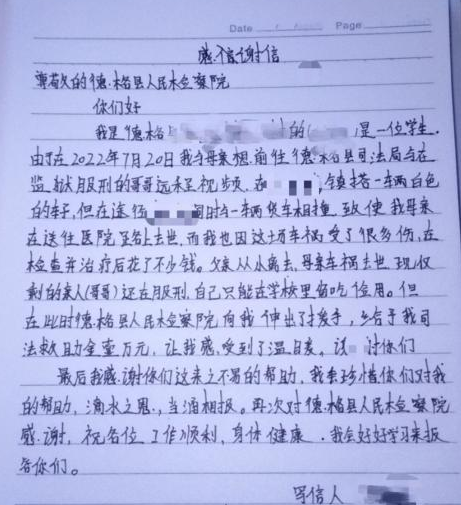 Date Page
感信谢信
尊敬的德格县人民检察院
你们好
我是德格 的 是一位学生.
由于在2022年7月20日我与母亲想前往德格县司法局与在
监狱服刑的哥哥远程视频,在 镇搭一辆白色
的车子,但在途径 时与一辆货车相撞,致使我母亲
在送往医院路上去世,而我也因这场车祸受了很多伤,在
检查并治疗后花了不少钱。父亲从小离去,母亲车祸去世,现仅
剩的亲人(哥哥)还在服刑,自己只能在学校里留吃住用。但
在此时德格县人民检察院向我伸出了援手,给予我司
法救助金壹万元,让我感受到了温暖。 你们
最后我感谢你们这来之不易的帮助,我会珍惜你们对我
的帮助,滴水之恩,当涌相报。再次对德格县人民检察院
感谢,祝各位工作顺利,身体健康.我会好好学习来报
答你们。
写信人